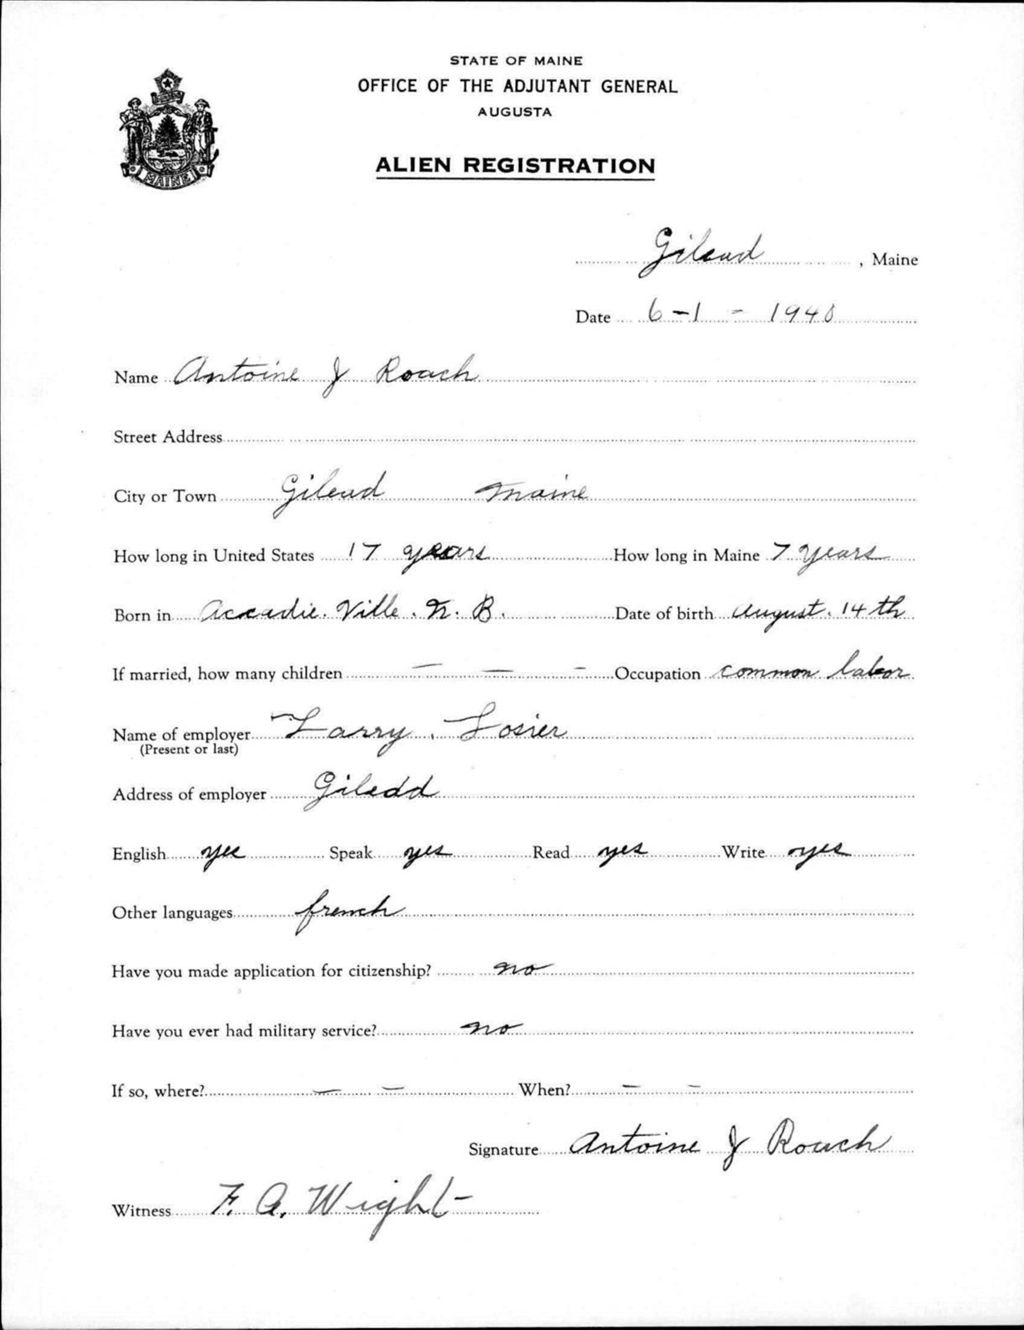 STATE OF MAINE
OFFICE OF THE ADJUTANT GENERAL
AUGUSTA
ALIEN REGISTRATION
MAINE
Gilead, Maine
Date 6-1-1940
Name Antoine J Roach
Street Address
City or Town Gilead Maine
How long in United States 17 years How long in Maine 7 years
Born in Accadie. Ville. N. B. Date of birth August. 14th
If married, how many children — — — Occupation common labor
Name of employer Larry. Losier
(Present or last)
Address of employer Giledd
English yes Speak yes Read yes Write yes
Other languages french
Have you made application for citizenship? no
Have you ever had military service? no
If so, where? — — When? — —
Signature Antoine J Roach
Witness F. A. Wight